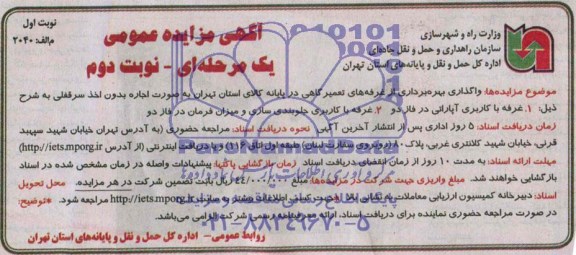 نوبت اول
م الف: ۲۰۴۰
آگهی مزایده عمومی
یک مرحله‌ای - نوبت دوم
وزارت راه و شهرسازی
سازمان راهداری و حمل و نقل جاده‌ای
اداره کل حمل و نقل و پایانه‌های استان تهران
موضوع مزایده‌ها: واگذاری بهره‌برداری از غرفه‌های تعمیر گاهی در پایانه کالای استان تهران به صورت اجاره بدون اخذ سرقفلی به شرح
ذیل: ۱. غرفه با کاربری آپاراتی در فاز دو ۲. غرفه با کاربری جلوبندی سازی و میزان فرمان در فاز دو
زمان دریافت اسناد: ۵ روز اداری پس از انتشار آخرین آگهی نحوه دریافت اسناد: مراجعه حضوری (به آدرس تهران خیابان شهید سپهبد
قرنی، خیابان شهید کلانتری غربی، پلاک ۸۰ (روبروی سفارت لبنان) طبقه اول اتاق ۱۱۶) و یا دریافت اینترنتی (از آدرس http://iets.mporg.ir)
مهلت ارائه اسناد: به مدت ۱۰ روز از زمان انقضای دریافت اسناد زمان بازگشایی پاکتها: پیشنهادات واصله در زمان مشخص شده در اسناد
بازگشایی خواهند شد. مبلغ واریزی جهت شرکت در مزایده‌ها: مبلغ ریال بابت تضمین شرکت در هر مزایده. محل تحویل
اسناد: دبیرخانه کمیسیون ارزیابی معاملات به نشانی بالا جهت کسب اطلاعات بیشتر به سایت http://iets.mporg.ir مراجعه شود. *توضیح:
در صورت مراجعه حضوری نماینده برای دریافت اسناد، ارائه معرفینامه رسمی شرکت الزامی می‌باشد.
روابط عمومی- اداره کل حمل و نقل و پایانه‌های استان تهران
۰۲۱-۸۸۳۴۹۶۷۰-۵